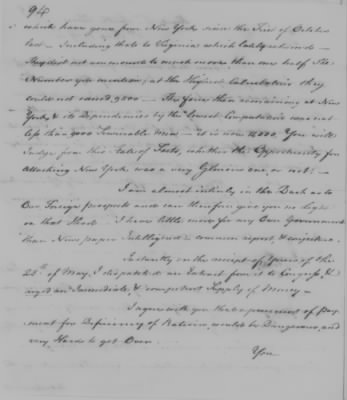 94
which have gone from New York since the First of October
last — Including those to Virginia which lately returned —
did not amount to much more than one half the
Number you mention; at the Highest Calculation they
could not exceed 9500 — The force then remaining at New
York & its Dependencies by the lowest Computation was not
less than 9000 Serviceable Men — it is now 11,000. You will
Judge from this State of Facts, whether the Opportunity for
attacking New York was a very Glorious one, or not. —
I am almost entirely in the Dark as to
Our Foreign prospects and can therefore give you no light
on that Head — I have little more for my Own Government
than News paper Intelligence, common report, & conjecture.
Instantly on the receipt of Yours of the
28th of May, I dispatched an Extract from it to Congress, &
urged an Immediate, & competent Supply of Money —
I agree with you that a precedent of Pay-
ment for Deficiency of Rations, would be Dangerous, and
very Hard to get Over.
You